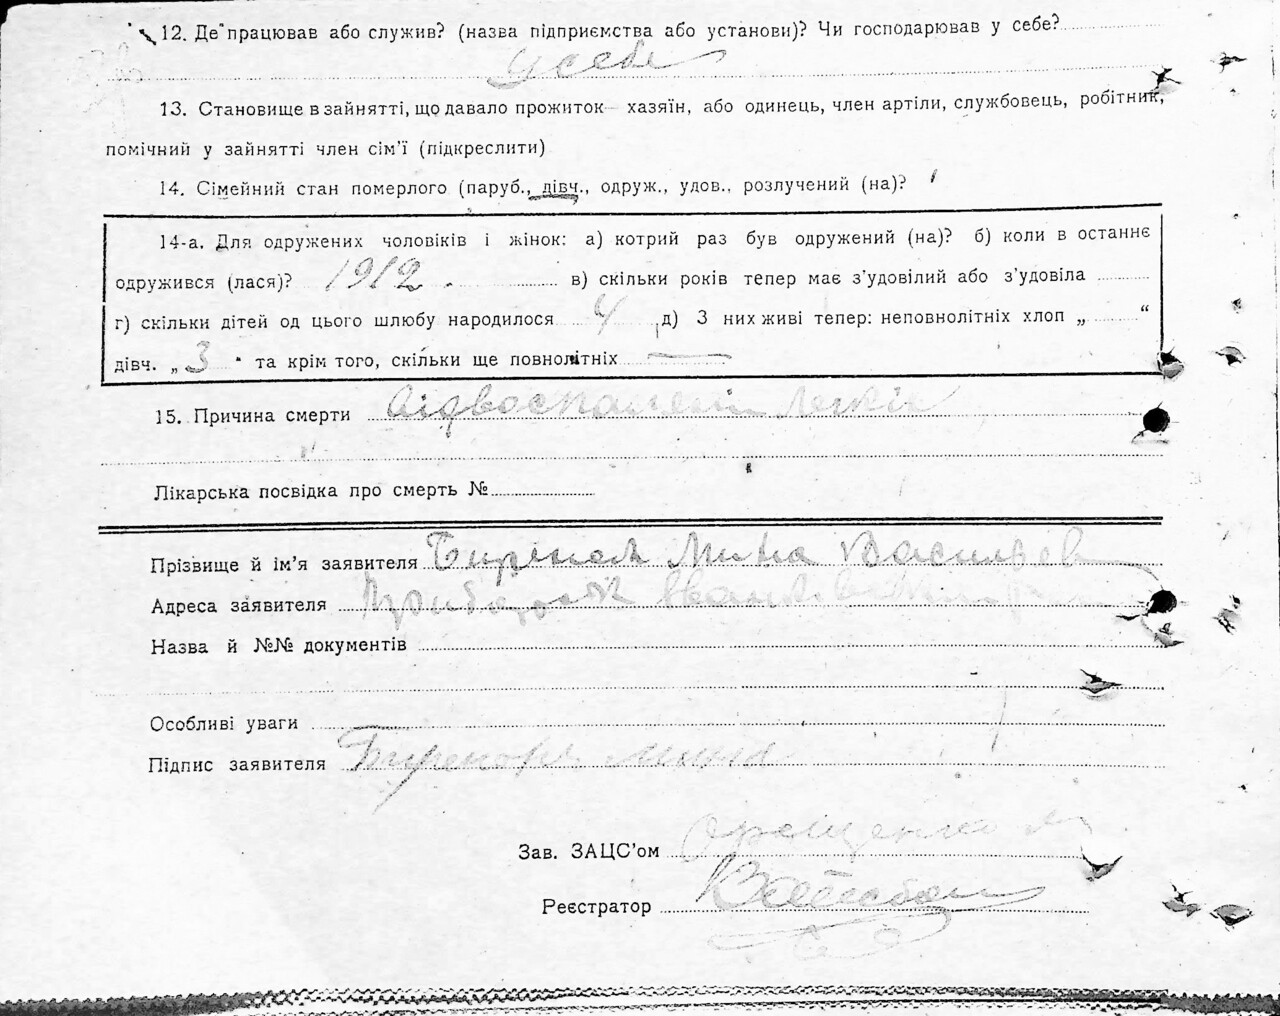 12. Де працював або служив? (назва підприємства або установи)? Чи господарював у себе?
у себе
13. Становище в зайнятті, що давало прожиток — хазяїн, або одинець, член артіли, службовець, робітник,
помічний у зайнятті член сім'ї (підкреслити)
14. Сімейний стан померлого (паруб., дівч., одруж., удов., розлучений (на)?
14-а. Для одружених чоловіків і жінок: а) котрий раз був одружений (на)? б) коли в останнє
одружився (лася)? 1912. в) скільки років тепер має з'удовілий або з'удовіла
г) скільки дітей од цього шлюбу народилося 4 д) З них живі тепер: неповнолітніх хлоп „ “
дівч. „ 3 “ та крім того, скільки ще повнолітніх —
15. Причина смерти від воспаления легких
Лікарська посвідка про смерть №
Прізвище й ім'я заявителя Мина Васильев
Адреса заявителя
Назва й №№ документів
Особливі уваги
Підпис заявителя Мина
Зав. ЗАЦС'ом
Реєстратор